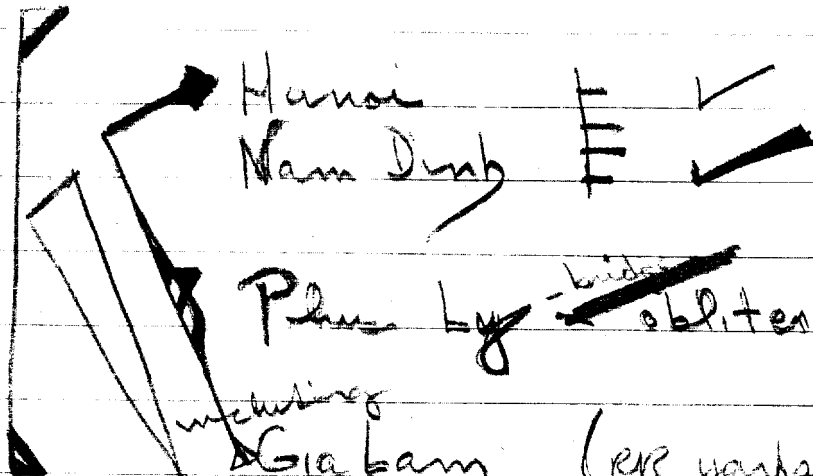 Hanoi
Nam Dinh
Phu Ly - bridge obliter
including
Gia Lam (RR yards